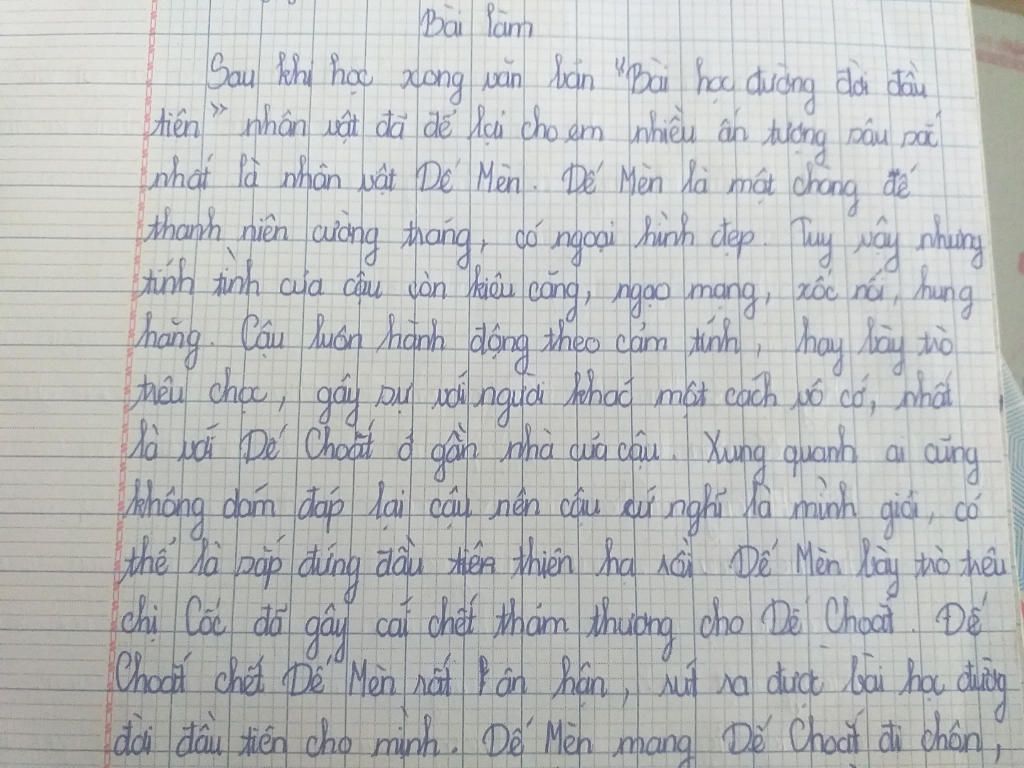 Bài làm
Sau khi học xong văn bản "Bài học đường đời đầu
tiên" nhân vật đã để lại cho em nhiều ấn tượng sâu sắc
nhất là nhân vật Dế Mèn. Dế Mèn là một chàng dế
thanh niên cường tráng, có ngoại hình đẹp. Tuy vậy nhưng
tính tình của cậu còn kiêu căng, ngạo mạng, xốc nổi, hung
hăng. Cậu luôn hành động theo cảm tính, hay bày trò
trêu chọc, gây sự với người khác một cách vô cớ, nhất
là với Dế Choắt ở gần nhà của cậu. Xung quanh ai cũng
không dám đáp lại cậu nên cậu cứ nghĩ là mình giỏi, có
thể là sắp đứng đầu thiên hạ rồi. Dế Mèn bày trò trêu
chị Cốc đã gây cái chết thảm thương cho Dế Choắt. Dế
Choắt chết Dế Mèn rất ân hận, rút ra được bài học đường
đời đầu tiên cho mình. Dế Mèn mang Dế Choắt đi chôn,